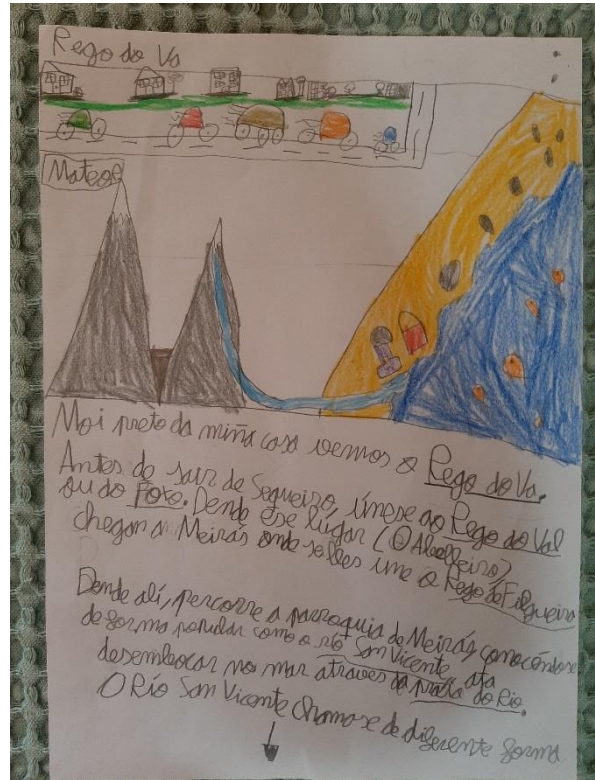 Rego do Va
Mateo
Moi preto da miña casa vemos o Rego do Va.
Antes de sair de Sequeiro, únese ao Rego do Val
ou do Foxo. Dende ese lugar (O Alvelleiro)
chegan a Meirás onde se lles une o Rego de Filgueira
Dende alí, percorre a parroquia de Meirás conocéndose
de forma popular como o río San Vicente ata
desembocar no mar atraves da praia do Rio.
O Río San Vicente chamase de diferente forma